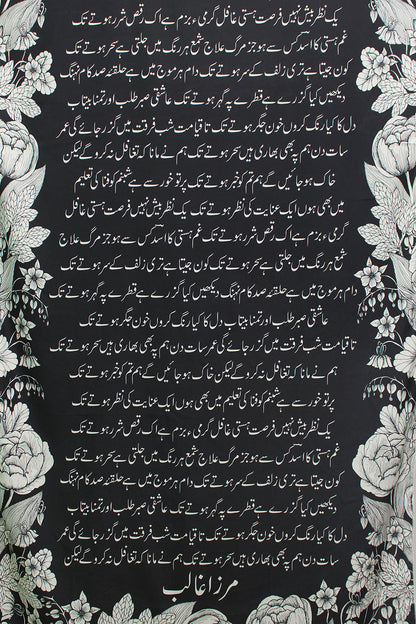 یک نظر بیش نہیں فرصت ہستی غافل گرمیٔ بزم ہے اک رقص شرر ہوتے تک
غم ہستی کا اسدؔ کس سے ہو جز مرگ علاج شمع ہر رنگ میں جلتی ہے سحر ہوتے تک
کون جیتا ہے تری زلف کے سر ہوتے تک دام ہر موج میں ہے حلقۂ صد کام نہنگ
دیکھیں کیا گزرے ہے قطرے پہ گہر ہوتے تک عاشقی صبر طلب اور تمنا بیتاب
دل کا کیا رنگ کروں خون جگر ہوتے تک تا قیامت شب فرقت میں گزر جائے گی عمر
سات دن ہم پہ بھی بھاری ہیں سحر ہوتے تک ہم نے مانا کہ تغافل نہ کرو گے لیکن
خاک ہو جائیں گے ہم تم کو خبر ہوتے تک پرتو خور سے ہے شبنم کو فنا کی تعلیم
میں بھی ہوں ایک عنایت کی نظر ہوتے تک یک نظر بیش نہیں فرصت ہستی غافل
گرمیٔ بزم ہے اک رقص شرر ہوتے تک غم ہستی کا اسدؔ کس سے ہو جز مرگ علاج
شمع ہر رنگ میں جلتی ہے سحر ہوتے تک کون جیتا ہے تری زلف کے سر ہوتے تک
دام ہر موج میں ہے حلقۂ صد کام نہنگ دیکھیں کیا گزرے ہے قطرے پہ گہر ہوتے تک
عاشقی صبر طلب اور تمنا بیتاب دل کا کیا رنگ کروں خون جگر ہوتے تک
تا قیامت شب فرقت میں گزر جائے گی عمر سات دن ہم پہ بھی بھاری ہیں سحر ہوتے تک
ہم نے مانا کہ تغافل نہ کرو گے لیکن خاک ہو جائیں گے ہم تم کو خبر ہوتے تک
پرتو خور سے ہے شبنم کو فنا کی تعلیم میں بھی ہوں ایک عنایت کی نظر ہوتے تک
یک نظر بیش نہیں فرصت ہستی غافل گرمیٔ بزم ہے اک رقص شرر ہوتے تک
غم ہستی کا اسدؔ کس سے ہو جز مرگ علاج شمع ہر رنگ میں جلتی ہے سحر ہوتے تک
کون جیتا ہے تری زلف کے سر ہوتے تک دام ہر موج میں ہے حلقۂ صد کام نہنگ
دیکھیں کیا گزرے ہے قطرے پہ گہر ہوتے تک عاشقی صبر طلب اور تمنا بیتاب
دل کا کیا رنگ کروں خون جگر ہوتے تک تا قیامت شب فرقت میں گزر جائے گی عمر
سات دن ہم پہ بھی بھاری ہیں سحر ہوتے تک ہم نے مانا کہ تغافل نہ کرو گے لیکن
مرزا غالب